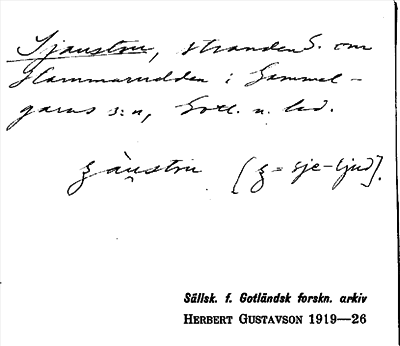 Sjaustru, stranden S. om
Hammarudden i Gammel-
garns s:n, Gotl. n. hd.
ʒàustru [ʒ = sje-ljud].
Sällsk. f. Gotländsk forskn. arkiv
HERBERT GUSTAVSON 1919—26